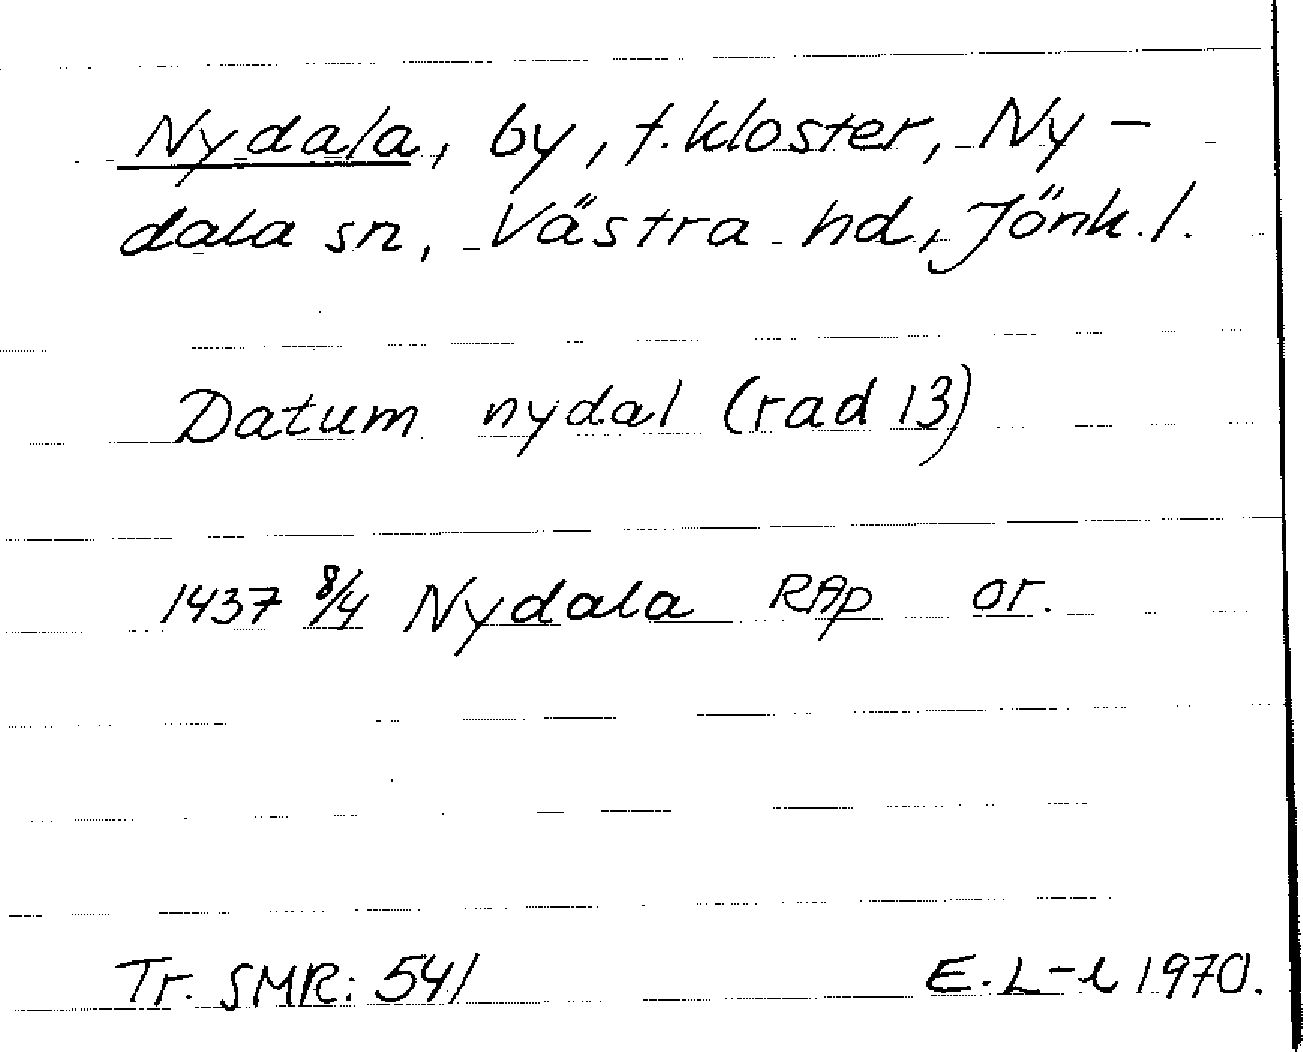 Nydala, by, f. kloster, Ny-
dala sn, Västra hd, Jönk. l.
Datum nydal (rad 13)
1437 8/4 Nydala RAp or.
Tr. SMR: 541 E. L-l 1970.